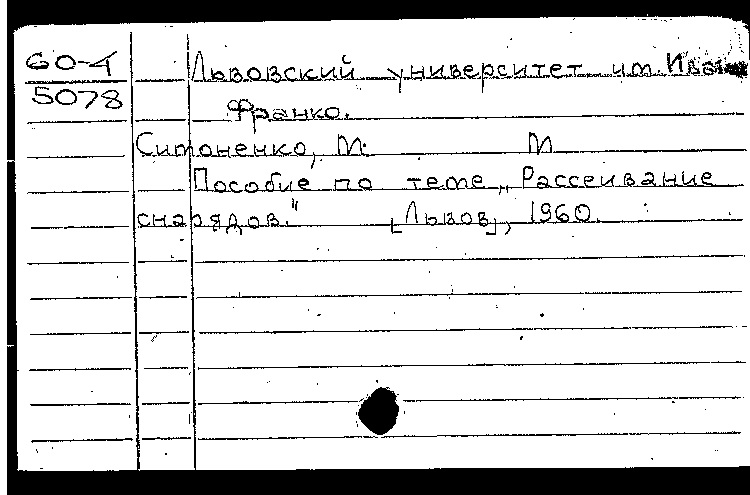 60-4 Львовский университет им. Ивана
5078 Франко.
Ситоненко, М. М
Пособие по теме „Рассеивание
снарядов." [Львов], 1960.